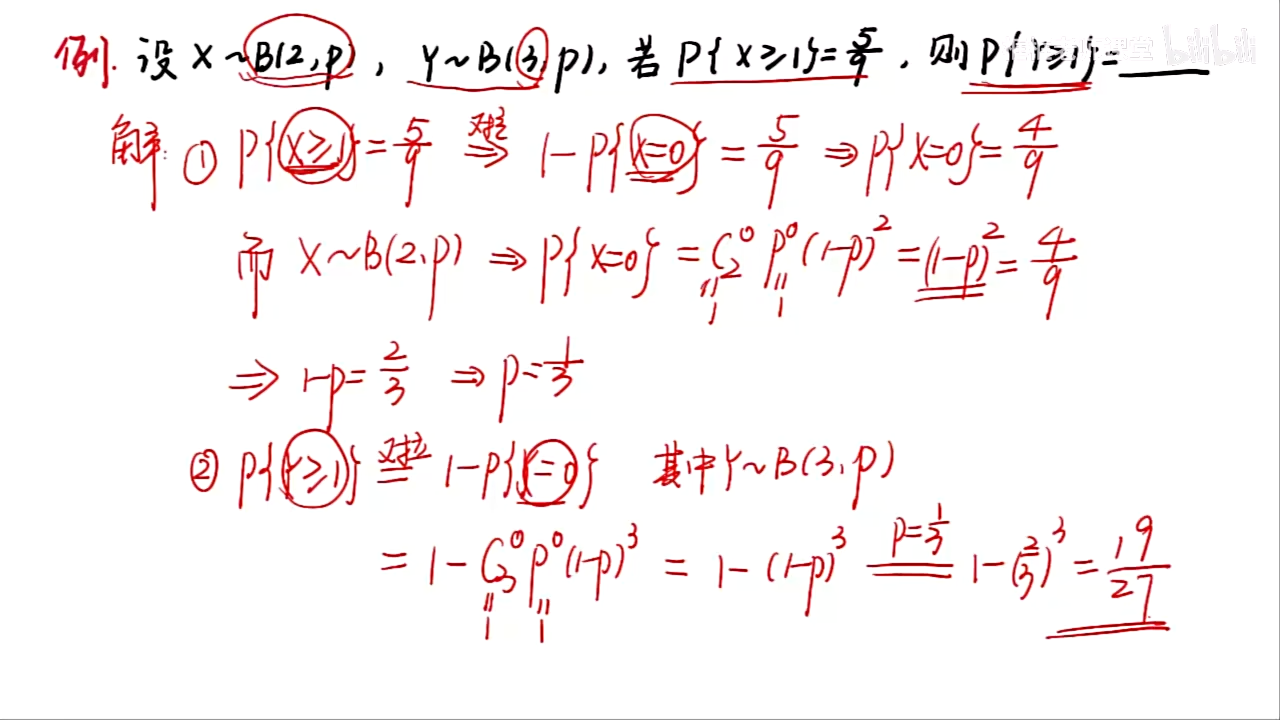 例. 设 X~B(2,p), Y~B(3,p), 若 P{X≥1}=5/9, 则 P{Y≥1}=____
bilibili
解: ① P{X≥1}=5/9 对立⇒ 1-P{X=0}=5/9 ⇒ P{X=0}=4/9
而 X~B(2,p) ⇒ P{X=0}=C₂⁰p⁰(1-p)²=(1-p)²=4/9
" 1 " 1
⇒ 1-p=2/3 ⇒ p=1/3
② P{Y≥1} 对立= 1-P{Y=0} 其中Y~B(3,p)
=1-C₃⁰p⁰(1-p)³=1-(1-p)³ p=1/3 = 1-(2/3)³=19/27
" 1 " 1